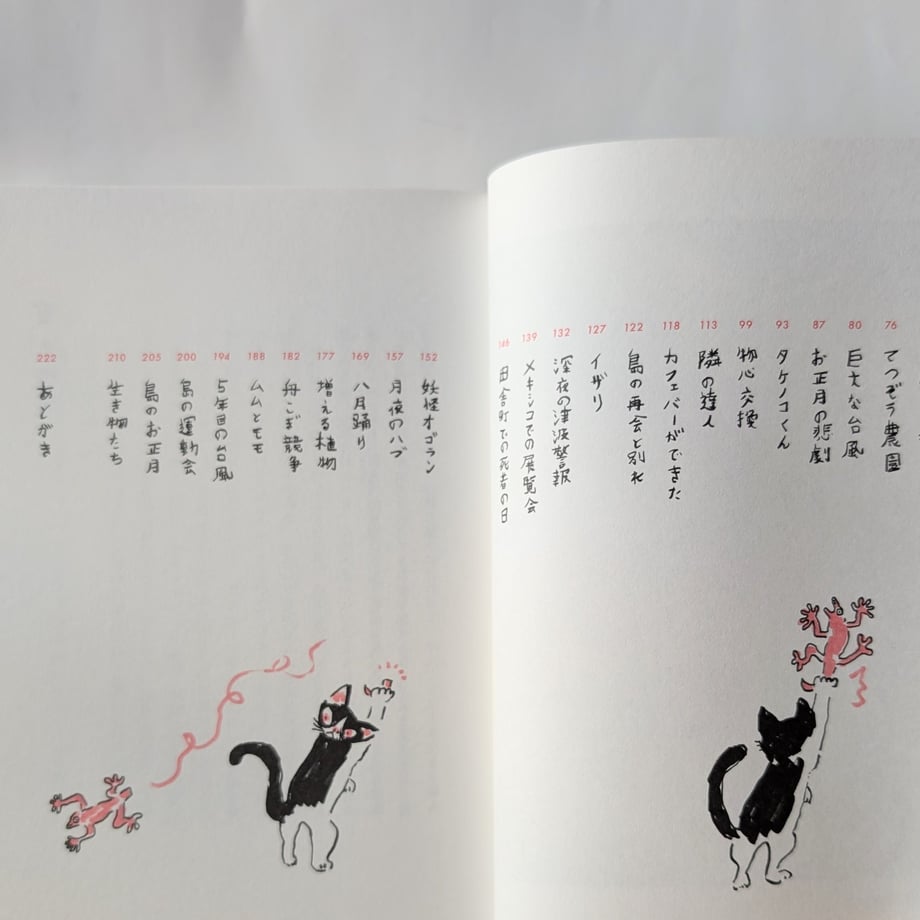 76 てつぞう農園
80 巨大な台風
87 お正月の悲劇
93 タケノコくん
99 物心交換
113 隣の達人
118 カフェバーができた
122 島の再会と別れ
127 イザリ
132 深夜の津波警報
139 メキシコでの展覧会
146 田舎町での死者の日
152 妖怪オゴラン
157 月夜のハブ
169 八月踊り
177 増える植物
182 舟こぎ競争
188 ムムとモモ
194 5年目の台風
200 島の運動会
205 島のお正月
210 生き物たち
222 あとがき